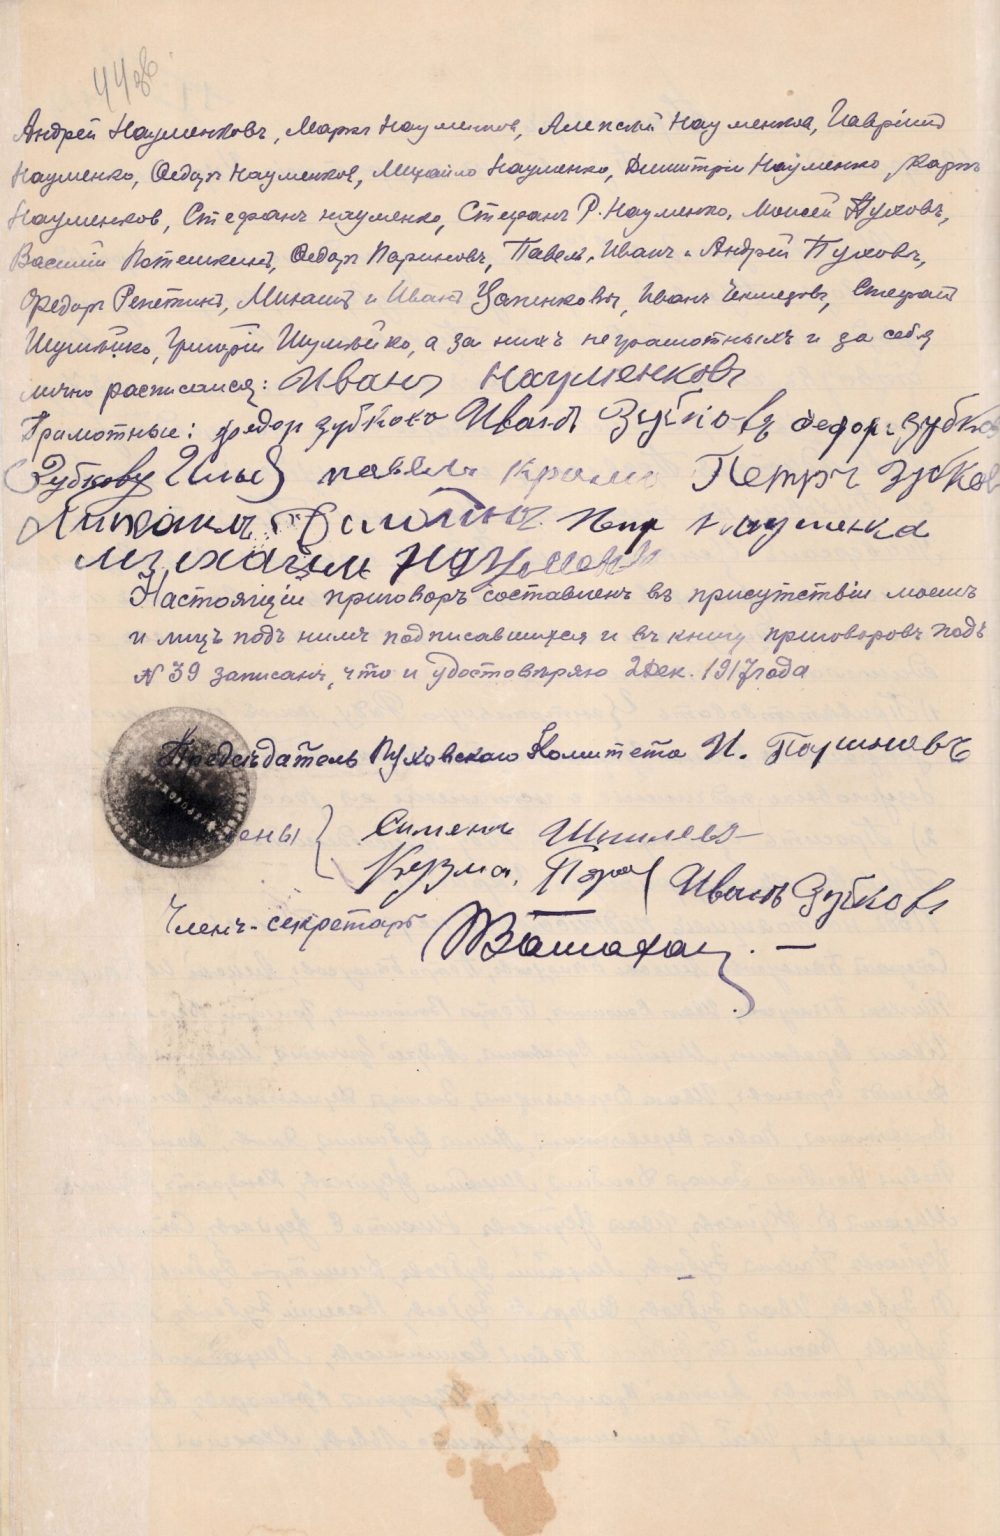 44 об
Андрей Науменковъ, Маркъ Науменков, Алексѣй Науменков, Гавріилъ
Науменко, Ѳедоръ Науменков, Михайло Науменко, Димитрій Науменко, Карпъ
Науменков, Стефанъ Науменко, Стефанъ Р. Науменко, Моисей Пуховъ,
Василій Потешкинъ, Ѳедоръ Париновъ, Павелъ, Иванъ и Андрей Пуховъ,
Федоръ Репетинъ, Михаилъ и Иванъ Цапенковы, Иванъ, Стефанъ
Шумѣйко, Григорій Шумѣйко, а за нихъ неграмотныхъ и за себя
лично расписался: Иванъ Науменковъ
Грамотные: Федор Зубково Иванъ Зубковъ Федоръ Зубков
Зубковъ Илья павелъ Петръ Зубков
Науменка
михаилъ
Настоящій приговоръ составленъ въ присутствіи моемъ
и лицъ подъ нимъ подписавшихся и въ книгу приговоровъ подъ
№ 39 записанъ, что и удостовѣряю 2 дек. 1917 года
Предсѣдатель Пуховскаго Комитета И. Париновъ
ены } Семенъ Шпилевъ
Кузма Иванъ Зубковъ
Членъ-секретарь